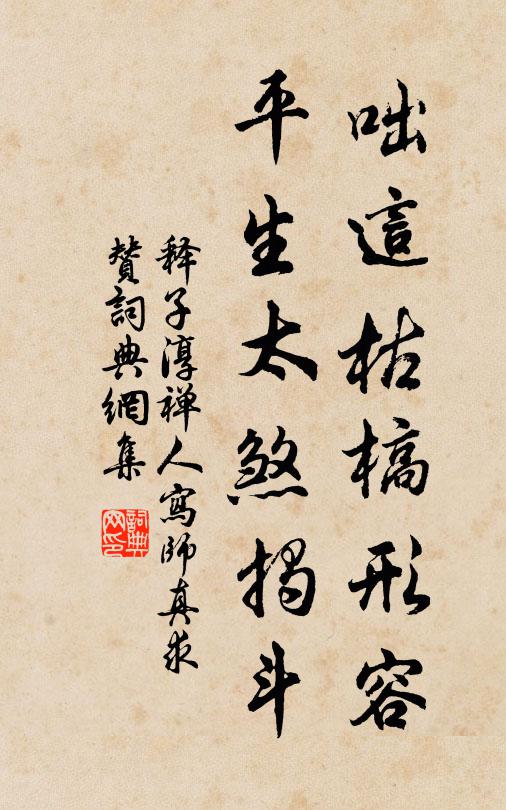 咄這枯槁形容
平生太煞揭斗
释子淳禅人寫師真求
贊詞典網集
詞典网印